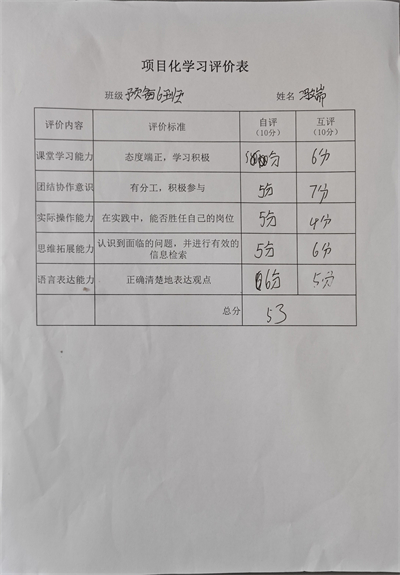 项目化学习评价表
班级 预备6班 姓名
评价内容 评价标准 自评(10分) 互评(10分)
课堂学习能力 态度端正,学习积极 分 6分
团结协作意识 有分工,积极参与 5分 7分
实际操作能力 在实践中,能否胜任自己的岗位 5分 4分
思维拓展能力 认识到面临的问题,并进行有效的 5分 6分
信息检索
语言表达能力 正确清楚地表达观点 6分 5分
总分 53